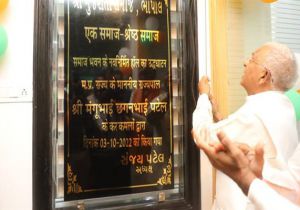 श्री गुजराती समाज, भोपाल
एक समाज-श्रेष्ठ समाज
समाज भवन के नवनिर्मित हॉल का उद्घाटन
म.प्र. राज्य के माननीय राज्यपाल
श्री मंगूभाई छगनभाई पटेल
के कर कमलों द्वारा
दिनांक 03-10-2022 को किया गया
संजय पटेल
अध्यक्ष